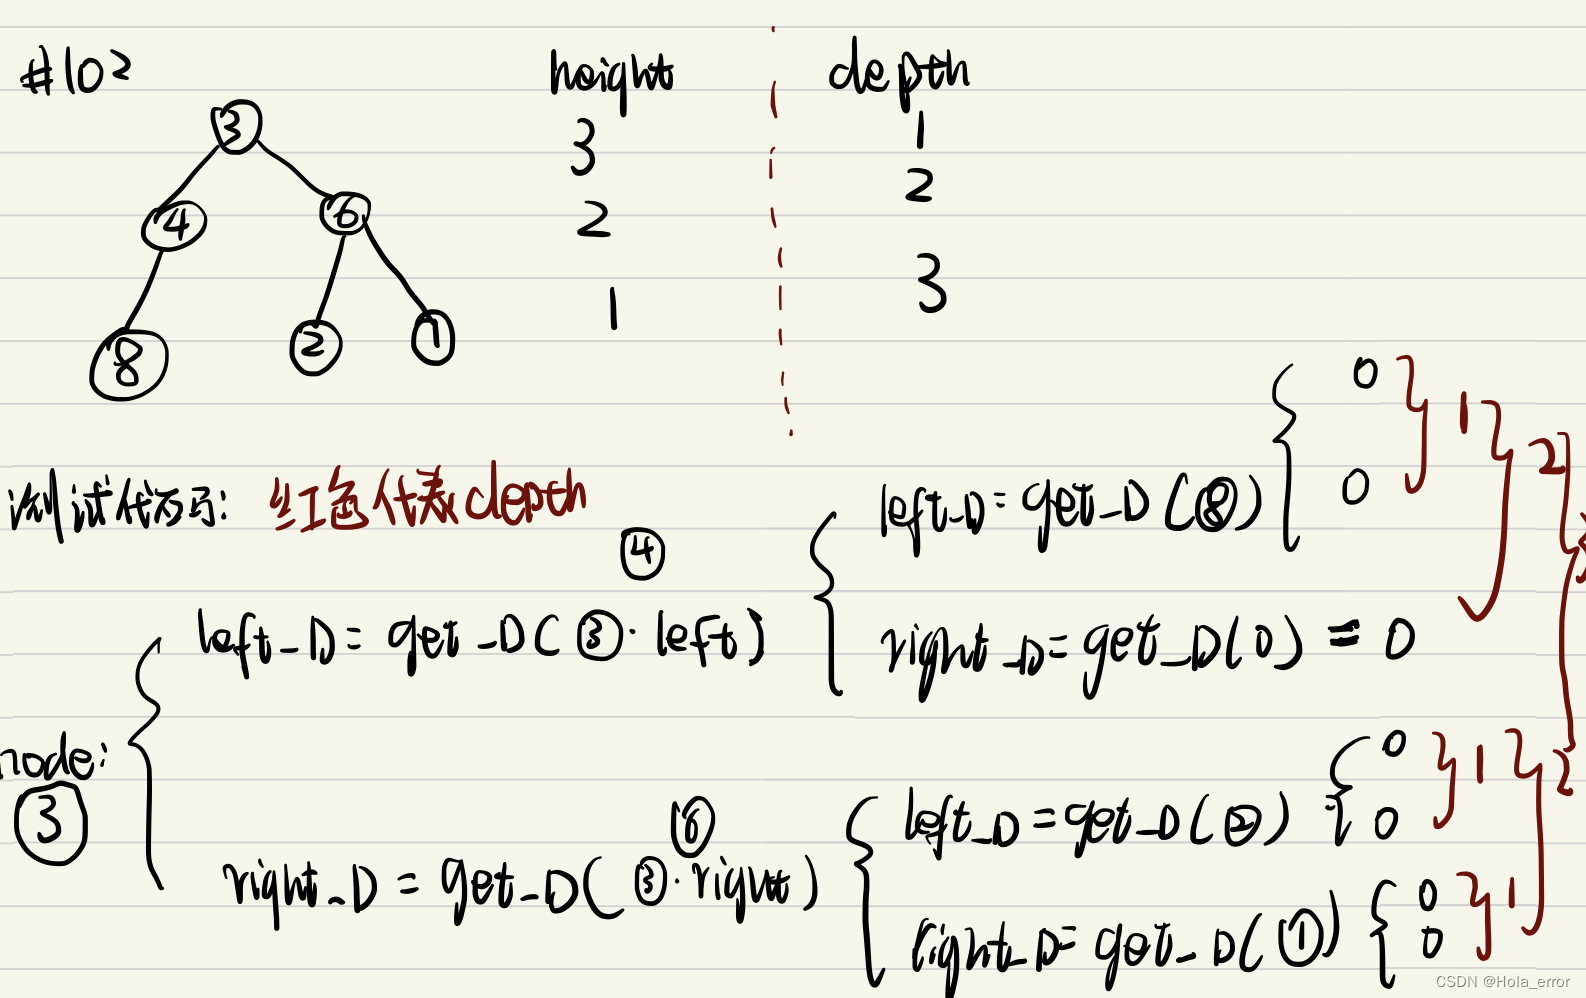 #102 height depth
③ 3 1
④ ⑥ 2 2
⑧ ② ① 1 3
测试代码: 红色代表depth
④
left_D = get_D(③.left) { left_D = get_D(⑧) { 0 0 } 1 } 2 }
right_D = get_D(0) = 0
node:
③
⑥
right_D = get_D(③.right) { left_D = get_D(②) { 0 0 } 1 } 2
right_D = get_D(①) { 0 0 } 1
CSDN @Hola_error